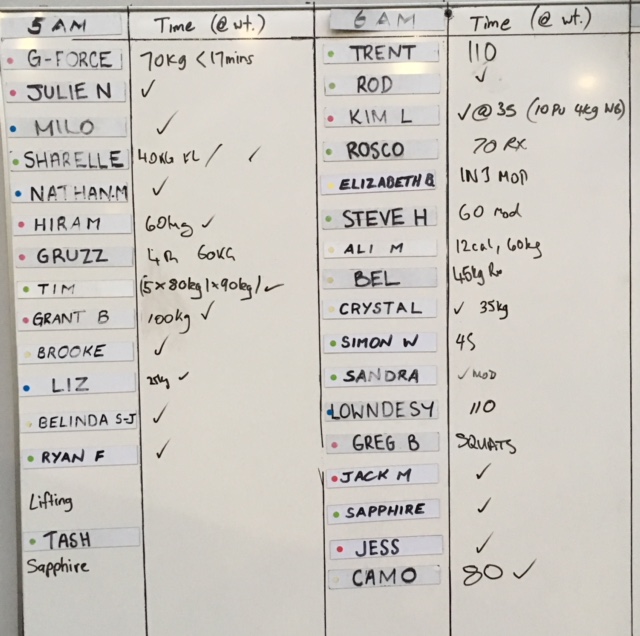 5 AM Time (@ wt.)
G-FORCE 70kg <17mins
JULIE N ✓
MILO ✓
SHARELLE 40KG / ✓
NATHAN.M ✓
HIRAM 60kg ✓
GRUZZ 60KG
TIM (5×80kg 1×90kg) ✓
GRANT B 100kg ✓
BROOKE ✓
LIZ 25kg ✓
BELINDA S-J ✓
RYAN F ✓
Lifting
TASH
Sapphire
6 AM Time (@ wt.)
TRENT 110
ROD ✓
KIM L ✓@35 (10 PU 4kg WB)
ROSCO 70 RX
ELIZABETH Q INJ MOD
STEVE H 60 mod
ALI M 12cal, 60kg
BEL 45kg Rx
CRYSTAL ✓ 35kg
SIMON W 45
SANDRA ✓ MOD
LOWNDESY 110
GREG B SQUATS
JACK M ✓
SAPPHIRE ✓
JESS ✓
CAMO 80 ✓